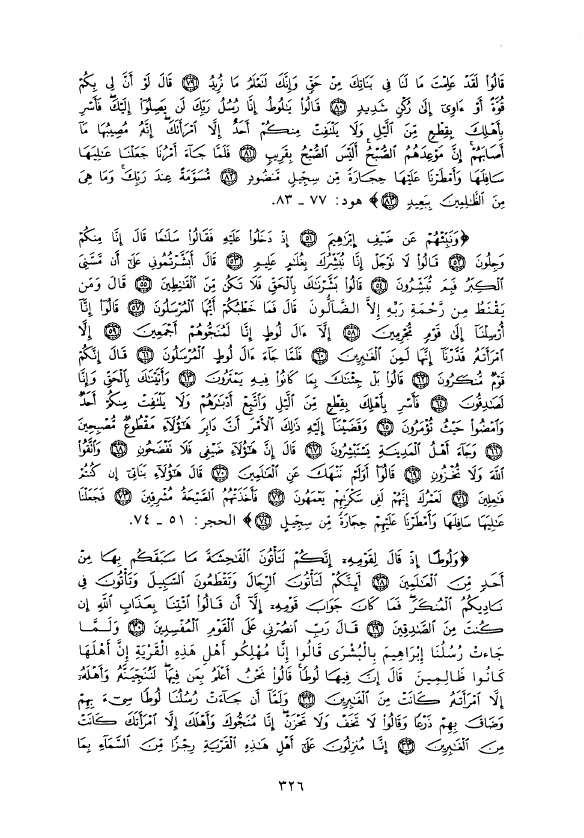 قَالُوا لَقَدْ عَلِمْتَ مَا لَنَا فِي بَنَاتِكَ مِنْ حَقٍّ وَإِنَّكَ لَتَعْلَمُ مَا نُرِيدُ ﴿٧٩﴾ قَالَ لَوْ أَنَّ لِي بِكُمْ
قُوَّةً أَوْ ءَاوِي إِلَىٰ رُكْنٍ شَدِيدٍ ﴿٨٠﴾ قَالُوا يَٰلُوطُ إِنَّا رُسُلُ رَبِّكَ لَن يَصِلُوٓا إِلَيْكَ فَأَسْرِ
بِأَهْلِكَ بِقِطْعٍ مِّنَ ٱلَّيْلِ وَلَا يَلْتَفِتْ مِنكُمْ أَحَدٌ إِلَّا ٱمْرَأَتَكَ إِنَّهُ مُصِيبُهَا مَآ
أَصَابَهُمْ إِنَّ مَوْعِدَهُمُ ٱلصُّبْحُ أَلَيْسَ ٱلصُّبْحُ بِقَرِيبٍ ﴿٨١﴾ فَلَمَّا جَآءَ أَمْرُنَا جَعَلْنَا عَٰلِيَهَا
سَافِلَهَا وَأَمْطَرْنَا عَلَيْهَا حِجَارَةً مِّن سِجِّيلٍ مَّنضُودٍ ﴿٨٢﴾ مُّسَوَّمَةً عِندَ رَبِّكَ وَمَا هِيَ
مِنَ ٱلظَّٰلِمِينَ بِبَعِيدٍ ﴿٨٣﴾﴾ هود: ٧٧ ـ ٨٣.
﴿وَنَبِّئْهُمْ عَن ضَيْفِ إِبْرَٰهِيمَ ﴿٥١﴾ إِذْ دَخَلُوا عَلَيْهِ فَقَالُوا سَلَٰمًا قَالَ إِنَّا مِنكُمْ
وَجِلُونَ ﴿٥٢﴾ قَالُوا لَا تَوْجَلْ إِنَّا نُبَشِّرُكَ بِغُلَٰمٍ عَلِيمٍ ﴿٥٣﴾ قَالَ أَبَشَّرْتُمُونِي عَلَىٰٓ أَن مَّسَّنِيَ
ٱلْكِبَرُ فَبِمَ تُبَشِّرُونَ ﴿٥٤﴾ قَالُوا بَشَّرْنَٰكَ بِٱلْحَقِّ فَلَا تَكُن مِّنَ ٱلْقَٰنِطِينَ ﴿٥٥﴾ قَالَ وَمَن
يَقْنَطُ مِن رَّحْمَةِ رَبِّهِ إِلاَّ الضَّالُّونَ قَالَ فَمَا خَطْبُكُمْ أَيُّهَا ٱلْمُرْسَلُونَ ﴿٥٧﴾ قَالُوٓا إِنَّآ
أُرْسِلْنَآ إِلَىٰ قَوْمٍ مُّجْرِمِينَ ﴿٥٨﴾ إِلَّآ ءَالَ لُوطٍ إِنَّا لَمُنَجُّوهُمْ أَجْمَعِينَ ﴿٥٩﴾ إِلَّا
ٱمْرَأَتَهُ قَدَّرْنَآ إِنَّهَا لَمِنَ ٱلْغَٰبِرِينَ ﴿٦٠﴾ فَلَمَّا جَآءَ ءَالَ لُوطٍ ٱلْمُرْسَلُونَ ﴿٦١﴾ قَالَ إِنَّكُمْ
قَوْمٌ مُّنكَرُونَ ﴿٦٢﴾ قَالُوا بَلْ جِئْنَٰكَ بِمَا كَانُوا فِيهِ يَمْتَرُونَ ﴿٦٣﴾ وَأَتَيْنَٰكَ بِٱلْحَقِّ وَإِنَّا
لَصَٰدِقُونَ ﴿٦٤﴾ فَأَسْرِ بِأَهْلِكَ بِقِطْعٍ مِّنَ ٱلَّيْلِ وَٱتَّبِعْ أَدْبَٰرَهُمْ وَلَا يَلْتَفِتْ مِنكُمْ أَحَدٌ
وَٱمْضُوا حَيْثُ تُؤْمَرُونَ ﴿٦٥﴾ وَقَضَيْنَآ إِلَيْهِ ذَٰلِكَ ٱلْأَمْرَ أَنَّ دَابِرَ هَٰٓؤُلَآءِ مَقْطُوعٌ مُّصْبِحِينَ
﴿٦٦﴾ وَجَآءَ أَهْلُ ٱلْمَدِينَةِ يَسْتَبْشِرُونَ ﴿٦٧﴾ قَالَ إِنَّ هَٰٓؤُلَآءِ ضَيْفِي فَلَا تَفْضَحُونِ ﴿٦٨﴾ وَٱتَّقُوا
ٱللَّهَ وَلَا تُخْزُونِ ﴿٦٩﴾ قَالُوٓا أَوَلَمْ نَنْهَكَ عَنِ ٱلْعَٰلَمِينَ ﴿٧٠﴾ قَالَ هَٰٓؤُلَآءِ بَنَاتِيٓ إِن كُنتُمْ
فَٰعِلِينَ ﴿٧١﴾ لَعَمْرُكَ إِنَّهُمْ لَفِي سَكْرَتِهِمْ يَعْمَهُونَ ﴿٧٢﴾ فَأَخَذَتْهُمُ ٱلصَّيْحَةُ مُشْرِقِينَ ﴿٧٣﴾ فَجَعَلْنَا
عَٰلِيَهَا سَافِلَهَا وَأَمْطَرْنَا عَلَيْهِمْ حِجَارَةً مِّن سِجِّيلٍ ﴿٧٤﴾﴾ الحجر: ٥١ ـ ٧٤.
﴿وَلُوطًا إِذْ قَالَ لِقَوْمِهِ إِنَّكُمْ لَتَأْتُونَ ٱلْفَٰحِشَةَ مَا سَبَقَكُم بِهَا مِنْ
أَحَدٍ مِّنَ ٱلْعَٰلَمِينَ ﴿٢٨﴾ أَئِنَّكُمْ لَتَأْتُونَ ٱلرِّجَالَ وَتَقْطَعُونَ ٱلسَّبِيلَ وَتَأْتُونَ فِي
نَادِيكُمُ ٱلْمُنكَرَ فَمَا كَانَ جَوَابَ قَوْمِهِ إِلَّآ أَن قَالُوا ٱئْتِنَا بِعَذَابِ ٱللَّهِ إِن
كُنتَ مِنَ ٱلصَّٰدِقِينَ ﴿٢٩﴾ قَالَ رَبِّ ٱنصُرْنِي عَلَى ٱلْقَوْمِ ٱلْمُفْسِدِينَ ﴿٣٠﴾ وَلَمَّا
جَاءَتْ رُسُلُنَا إِبْرَاهِيمَ بِالْبُشْرَى قَالُوا إِنَّا مُهْلِكُو أَهْلِ هَذِهِ الْقَرْيَةِ إِنَّ أَهْلَهَا
كَانُوا ظَالِمِينَ قَالَ إِنَّ فِيهَا لُوطًا قَالُوا نَحْنُ أَعْلَمُ بِمَن فِيهَا لَنُنَجِّيَنَّهُ وَأَهْلَهُ
إِلَّا ٱمْرَأَتَهُ كَانَتْ مِنَ ٱلْغَٰبِرِينَ ﴿٣٢﴾ وَلَمَّآ أَن جَآءَتْ رُسُلُنَا لُوطًا سِيٓءَ بِهِمْ
وَضَاقَ بِهِمْ ذَرْعًا وَقَالُوا لَا تَخَفْ وَلَا تَحْزَنْ إِنَّا مُنَجُّوكَ وَأَهْلَكَ إِلَّا ٱمْرَأَتَكَ كَانَتْ
مِنَ ٱلْغَٰبِرِينَ ﴿٣٣﴾ إِنَّا مُنزِلُونَ عَلَىٰٓ أَهْلِ هَٰذِهِ ٱلْقَرْيَةِ رِجْزًا مِّنَ ٱلسَّمَآءِ بِمَا
٣٢٦